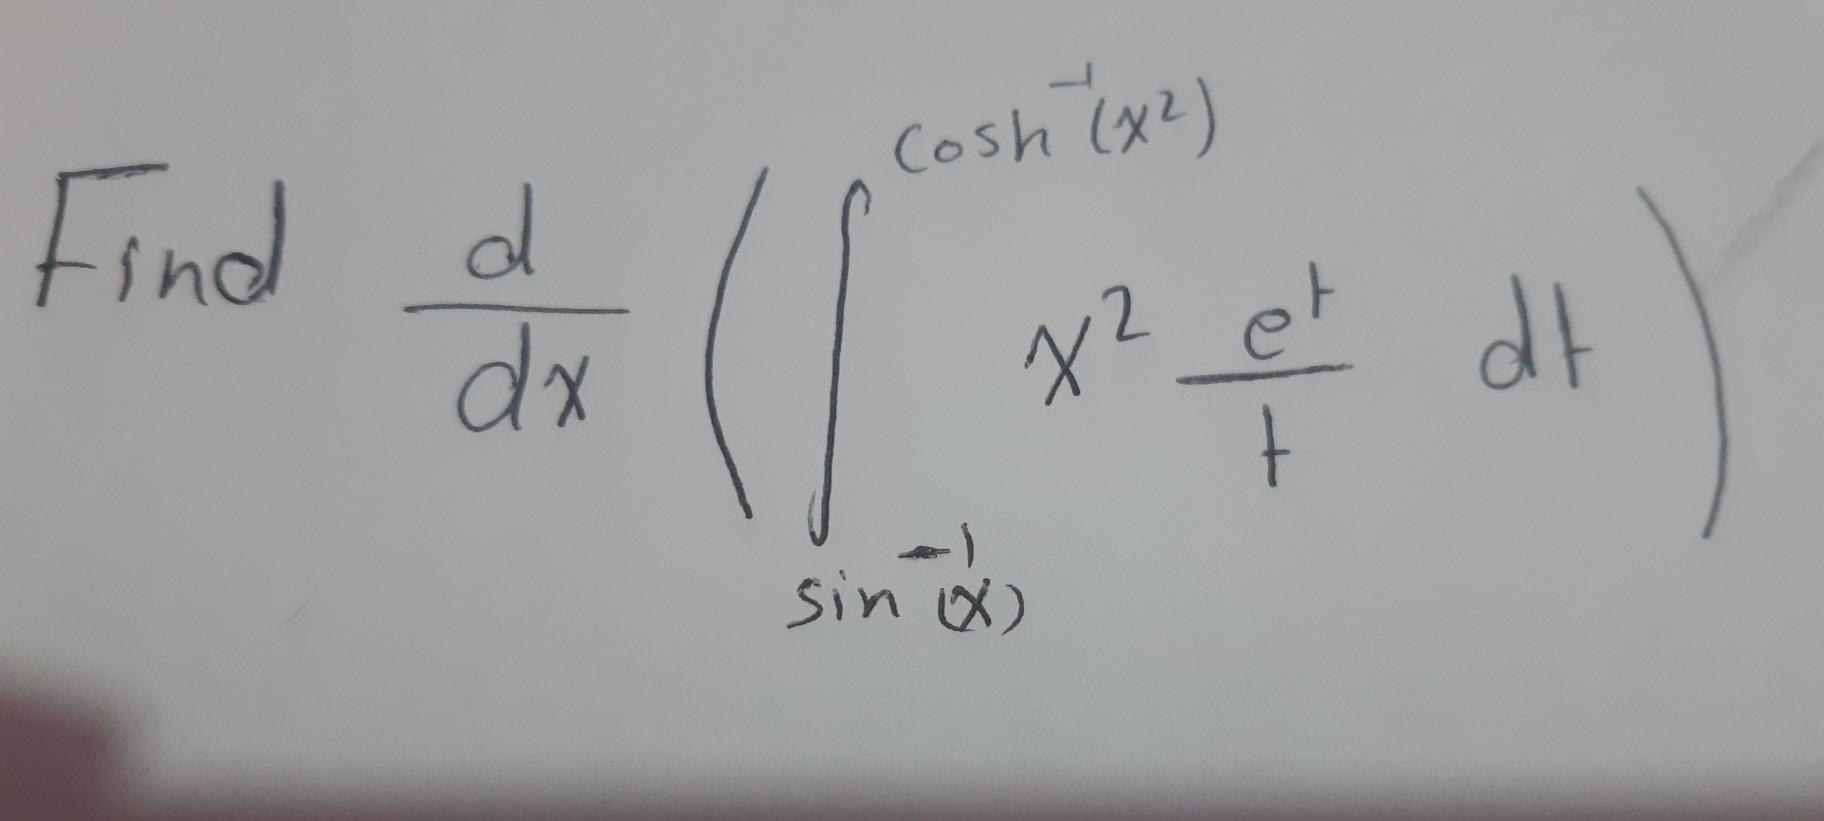 Find d/dx ( ∫_{sin⁻¹(x)}^{cosh⁻¹(x²)} x² e^t/t dt )